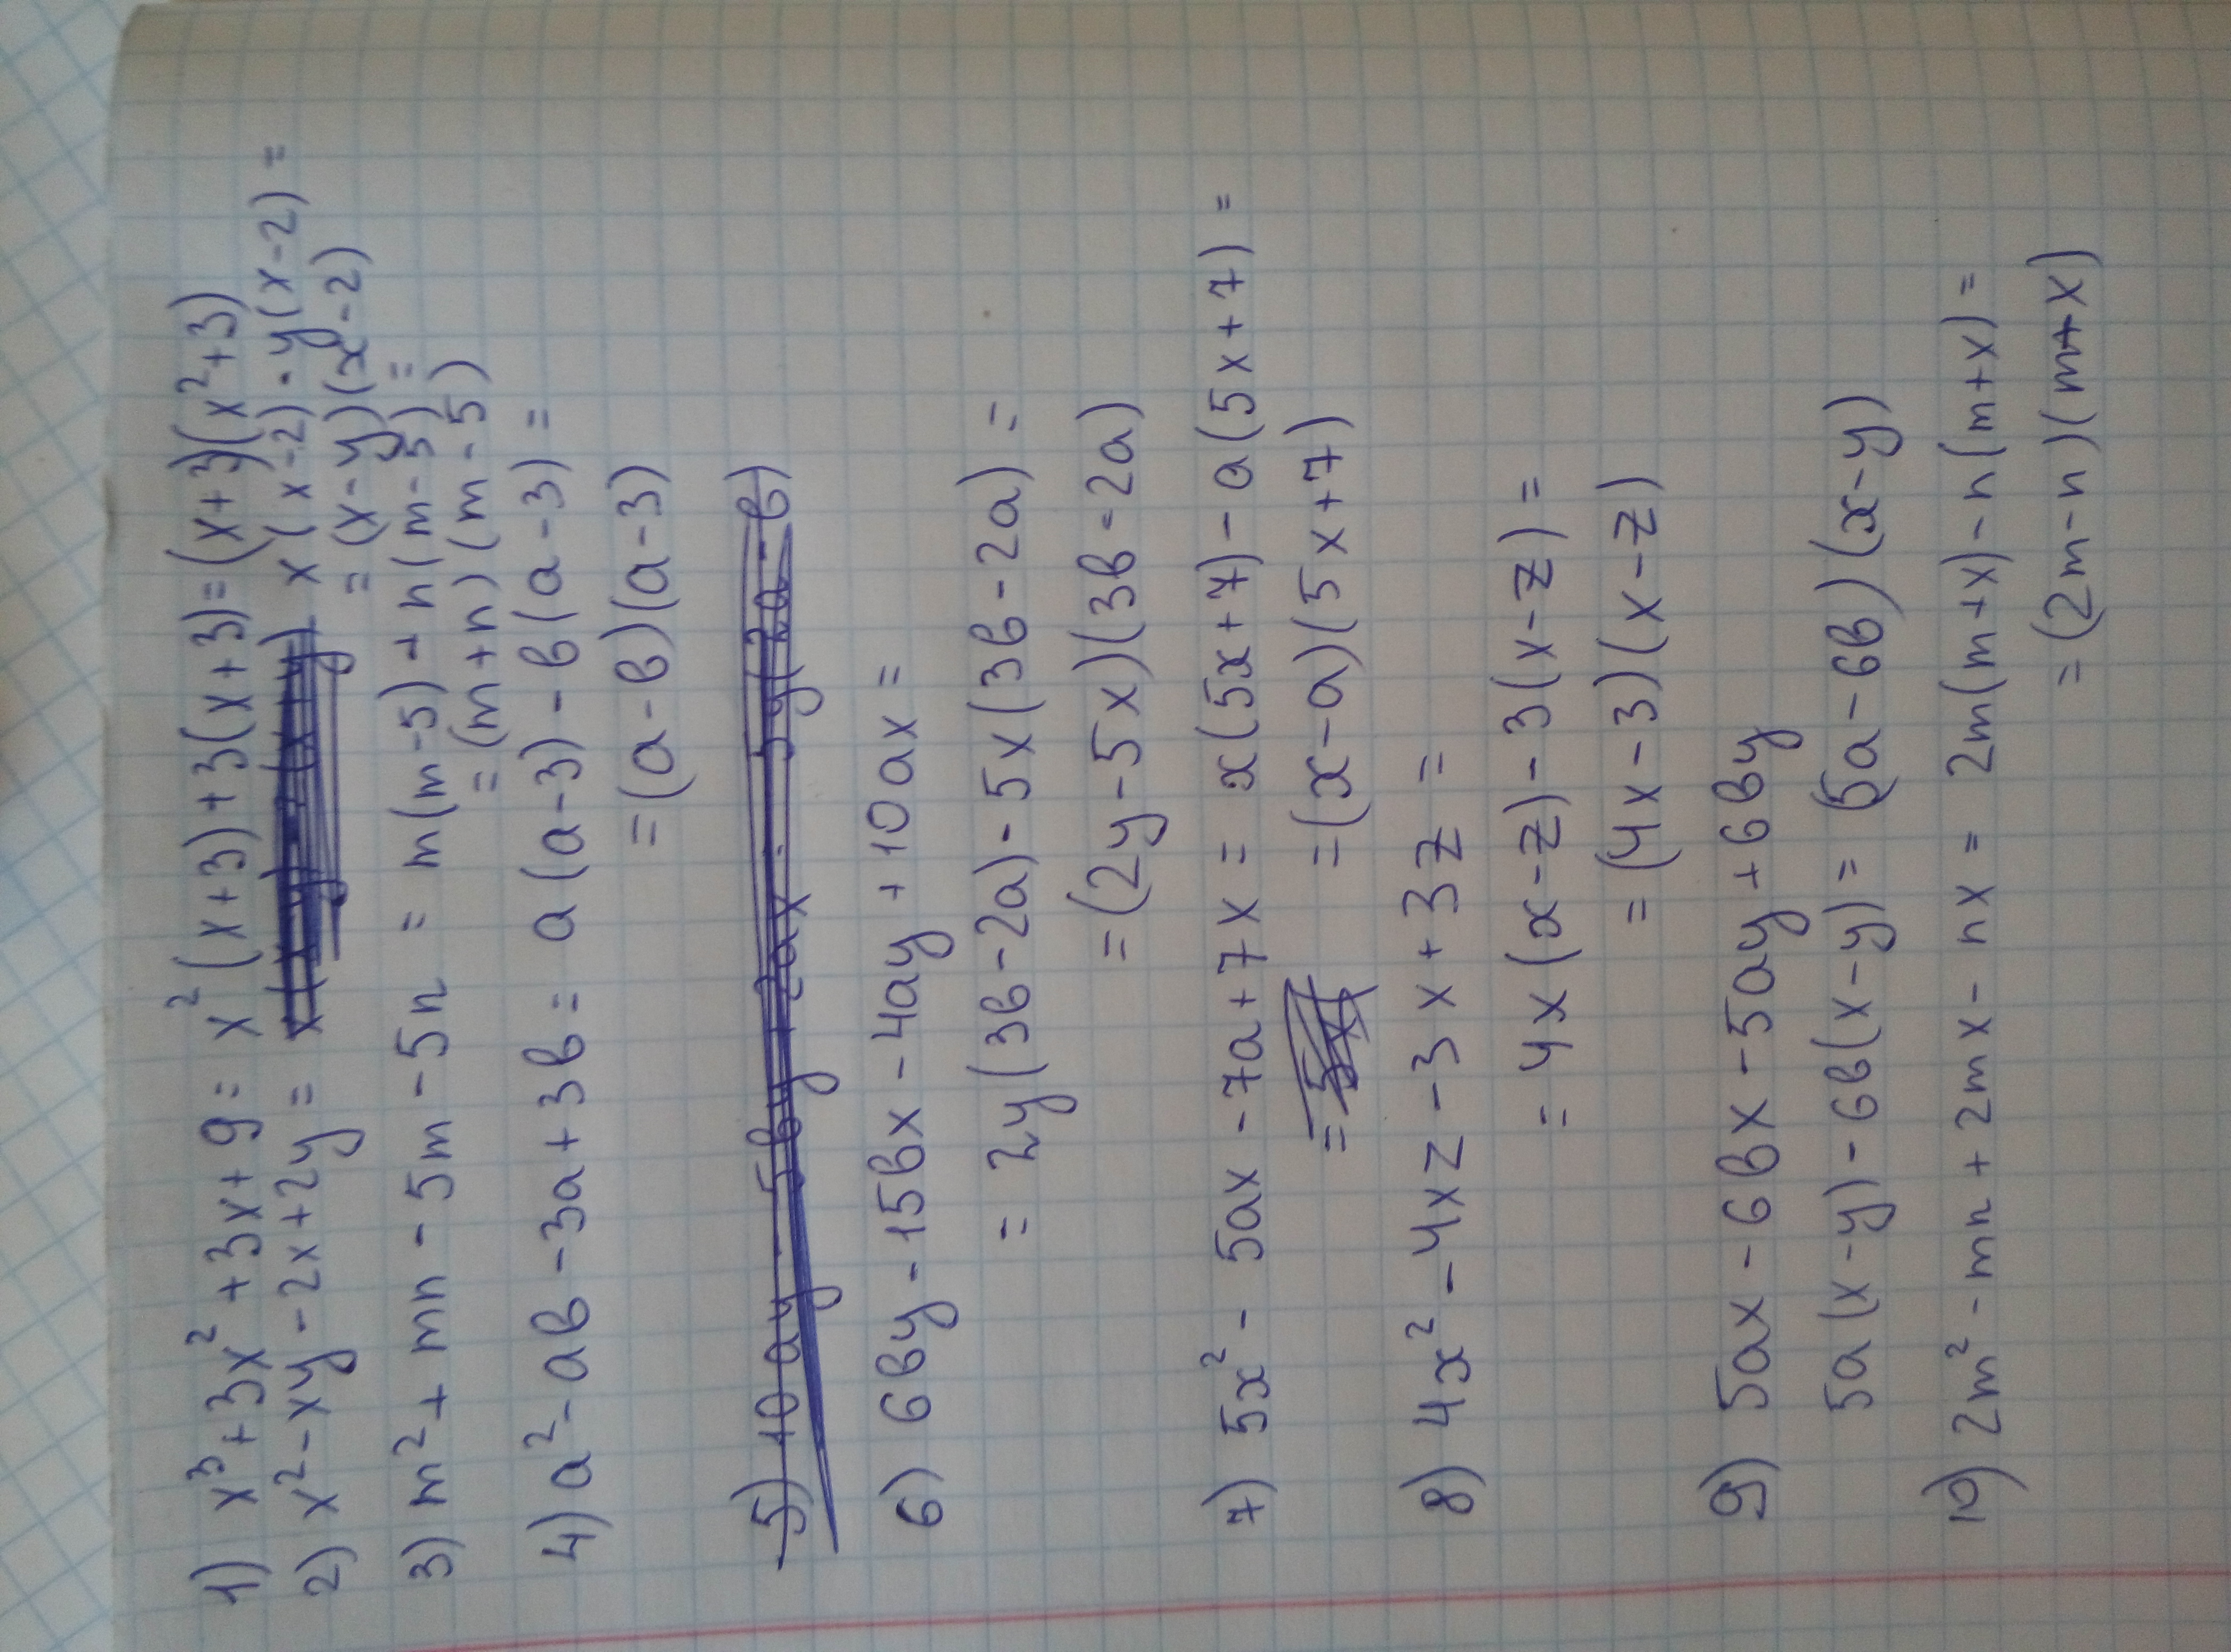 1) x³+3x²+3x+9= x²(x+3)+3(x+3)=(x+3)(x²+3)
2) x²-xy-2x+2y= x(x-2)-y(x-2)=
=(x-y)(x-2)
3) m²+mn-5m-5n = m(m-5)+n(m-5)=
=(m+n)(m-5)
4) a²-ab-3a+3b= a(a-3)-b(a-3)=
=(a-b)(a-3)
5) 10ay-5by+2ax-
6) 6by-15bx-4ay+10ax=
= 2y(3b-2a)-5x(3b-2a)=
=(2y-5x)(3b-2a)
7) 5x²-5ax-7a+7x= x(5x+7)-a(5x+7)=
=(x-a)(5x+7)
8) 4x²-4xz-3x+3z=
= 4x(x-z)-3(x-z)=
=(4x-3)(x-z)
9) 5ax-6bx-5ay+6by
5a(x-y)-6b(x-y)=(5a-6b)(x-y)
10) 2m²-mn+2mx-nx= 2m(m+x)-n(m+x)=
=(2m-n)(m+x)